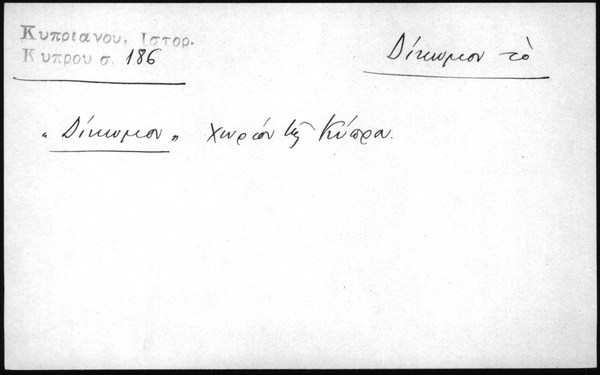 Κυπριανου, Ιστορ.
Κυπρου σ. 186
Δίκωμον τὸ
"Δίκωμον" χωρίον τῆς Κύπρου.